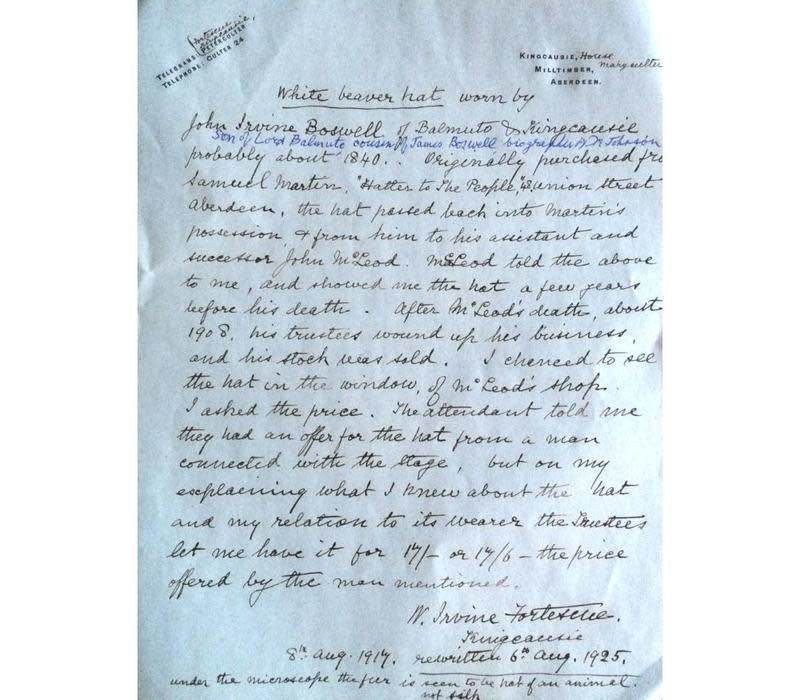 Fortescue,
Kingcausie,
TELEGRAMS PETERCULTER
TELEPHONE: CULTER 24
KINGCAUSIE, House
Maryculter
MILLTIMBER,
ABERDEEN.
White beaver hat worn by
John Irvine Boswell of Balmuto & Kingcausie
Son of Lord Balmuto cousin of James Boswell biographer of Dr Johnson
probably about 1840. Originally purchased fro
Samuel Martin, "Hatter to The People," union street
aberdeen, the hat passed back into Martin's
possession & from him to his assistant and
successor John McLeod. McLeod told the above
to me, and showed me the hat a few years
before his death. After McLeod's death, about
1908, his trustees wound up his business,
and his stock was sold. I chanced to see
the hat in the window, of McLeod's shop.
I asked the price. The attendant told me
they had an offer for the hat from a man
connected with the stage, but on my
explaining what I knew about the hat
and my relation to its wearer the Trustees
let me have it for 17/- or 17/6 – the price
offered by the man mentioned.
W. Irvine Fortescue.
Kingcausie
8th Aug. 1917. rewritten 6th Aug. 1925.
under the microscope the fur is seen to be hat of an animal.
not silk